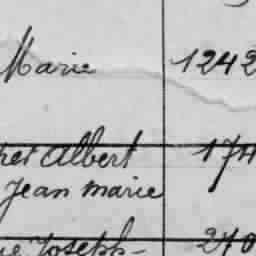 Marie 1242
Albert 174
Jean marie
Joseph- 240